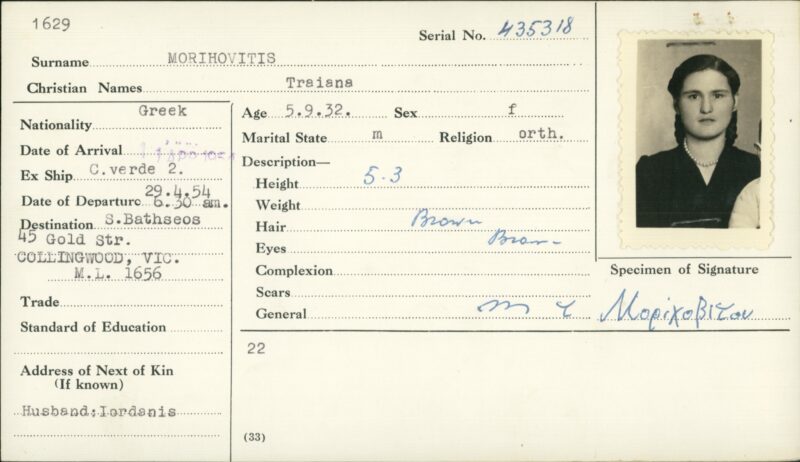 1629
Serial No. 435318
Surname MORIHOVITIS
Christian Names Traiana
Nationality Greek
Date of Arrival
Ex Ship C.verde 2.
Date of Departure 29.4.54 6.30 am.
Destination S.Bathseos
45 Gold Str.
COLLINGWOOD, VIC.
M.L. 1656
Trade
Standard of Education
Address of Next of Kin
(If known)
Husband:Iordanis
Age 5.9.32. Sex f
Marital State m Religion orth.
Description—
Height 5-3
Weight
Hair Brown
Eyes Brown
Complexion
Scars
General
22
(33)
Specimen of Signature
Μοριχοβιτου